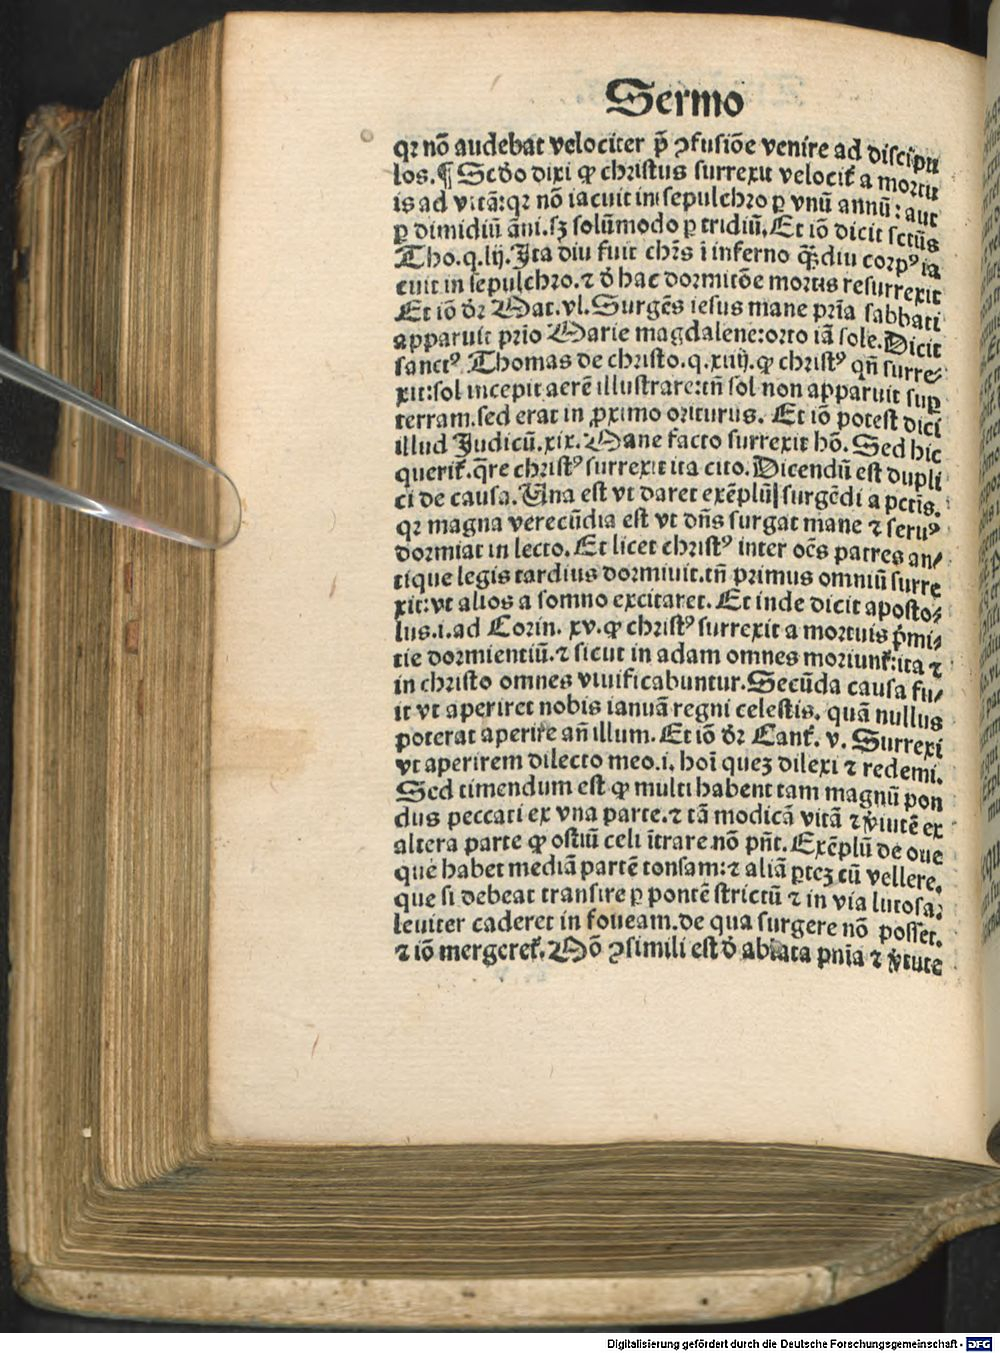 Sermo
qꝛ nō audebat velociter p̄ ꝯfusiōe venire ad discipu
los.¶ Scd̓o dixi ꝙ christus surrexit velociť a mortu
is ad vitā:qꝛ nō iacuit in sepulchro ꝑ vnū annū: aut
ꝑ dimidiū āni.sꝫ solūmodo ꝑ triduū. Et iō dicit sctūs
Tho.q.lij. Ita diu fuit chr̄s ī inferno qꝫdiu corpꝰ ia
cuit in sepulchro.⁊ d̓ hac dormitōe mortis resurrexit
Et iō dr̄ Mat.vl. Surgēs iesus mane pria sabbati
apparuit prio Marie magdalene:orto iā sole. Dicit
sanctꝰ Thomas de christo.q.xiiij.ꝙ christꝰ qn̄ surre⸗
xit:sol incepit aerē illustrare:tn̄ sol non apparuit suꝑ
terram.sed erat in ꝓximo oriturus. Et iō potest dici
illud Judicū.xix. Mane facto surrexit hō. Sed hic
queriť.q̄re christꝰ surrexit ita cito. Dicendū est dupli
ci de causa. Una est vt daret exēplū surgēdi a pctīs.
qꝛ magna verecūdia est vt dn̄s surgat mane ⁊ seruꝰ
dormiat in lecto. Et licet christꝰ inter oēs patres an⸗
tique legis tardius dormiuit.tn̄ primus omniū surre
xit:vt alios a somno excitaret. Et inde dicit aposto⸗
lus.i.ad Corin. xv.ꝙ christꝰ surrexit a mortuis p̓mi⸗
tie dormientiū.⁊ sicut in adam omnes moriunť:ita ⁊
in christo omnes viuificabuntur. Secūda causa fu⸗
it vt aperiret nobis ianuā regni celestis. quā nullus
poterat aperire an̄ illum. Et iō dr̄ Canť. v. Surrexi
vt aperirem dilecto meo.i. hoī quez dilexi ⁊ redemi.
Sed timendum est ꝙ multi habent tam magnū pon
dus peccati ex vna parte.⁊ tā modicā vitā ⁊ v̓tutē ex
altera parte ꝙ ostiū celi ītrare nō pn̄t. Exēplū de oue
que habet mediā partē tonsam:⁊ aliā ꝑtez cū vellere.
que si debeat transire ꝑ pontē strictū ⁊ in via lutosa:
leuiter caderet in foueam.de qua surgere nō posset.
⁊ iō mergereť. Mō ꝯsimili est d̓ ablata pnīa ⁊ v̓tute
Digitalisierung gefördert durch die Deutsche Forschungsgemeinschaft - DFG